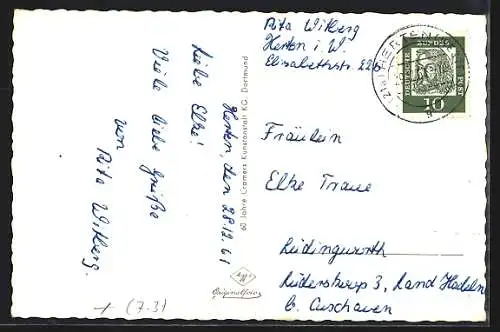 Rita Witberg
Herten i. W.
Elisabethstr. 22b
Herten, den 28.12.61
Liebe Elke!
Viele liebe Grüße
von
Rita Witberg.
60 Jahre Cramers Kunstanstalt KG. Dortmund
Originalfoto
HERTEN
DEUTSCHE
BUNDES
POST
10
Fräulein
Elke Traue
Lüdingworth
Lüderskoop 3, Land Hadeln
b. Cuxhaven
+ (7.3)